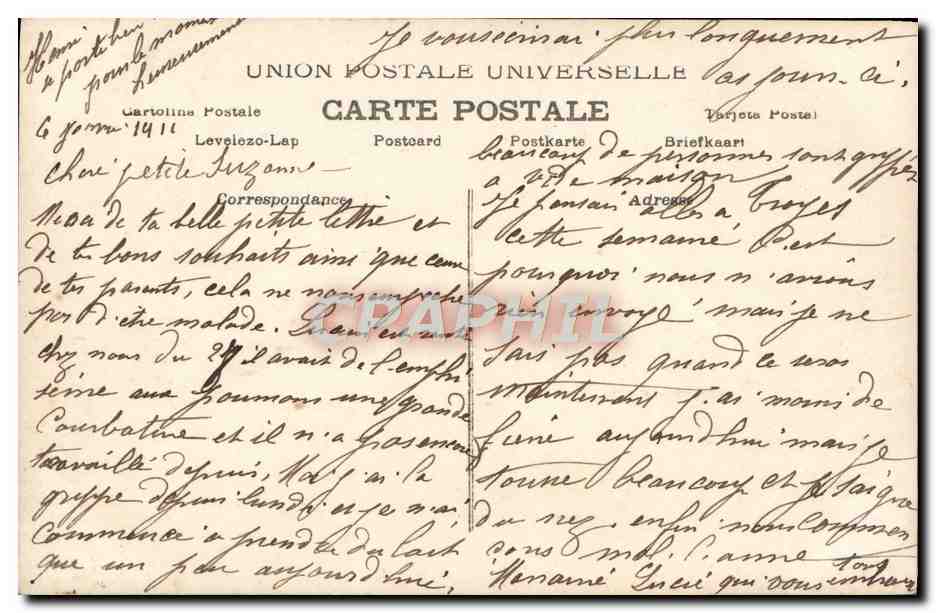 Henri
se porte bien
pour le moment
heureusement
Je vous écrirai plus longuement
UNION POSTALE UNIVERSELLE
ces jours-ci.
Cartolina Postale
CARTE POSTALE
Tarjeta Postal
6 Janvier 1911
Levelezo-Lap
Postcard
Postkarte
Briefkaart
Chère petite Suzanne
Correspondance
Merci de ta belle petite lettre et
de tes bons souhaits ainsi que ceux
de tes parents, cela ne nous empêche
pas d'être malade. est resté
chez nous du 27 il avait de l'emphi
sème aux poumons une grande
Courbature et il n'a pas encore
travaillé depuis, Moi j'ai la
grippe depuis lundi et je n'ai
commencé à prendre du lait
que un peu aujourd'hui,
beaucoup de personnes sont grippés
a maison
Adresse
Je pensais aller a Troyes
cette semaine C'est
pourquoi nous n'avions
rien envoyé mais je ne
sais pas quand ce sera
maintenant j'ai moins de
fièvre aujourd'hui mais je
tousse beaucoup et je saigne
du nez. enfin nous commen
çons mal l'année
Lucie qui vous
CPAPHIL